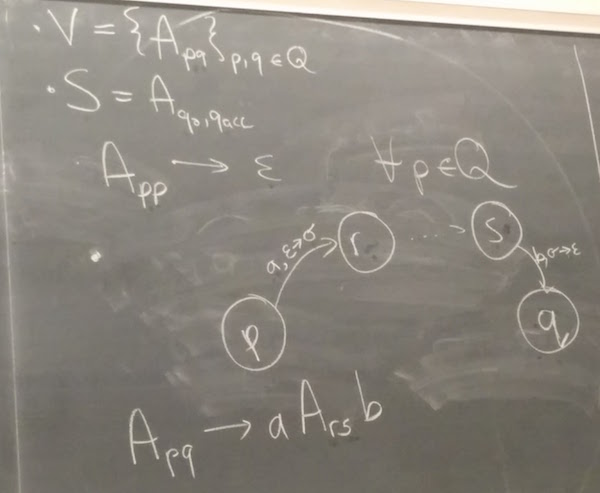 · V = {A_pq}_p,q∈Q
· S = A_q₀,q_acc
A_pp → ε ∀p∈Q
a, ε→σ r s b, σ→ε
p q
A_pq → a A_rs b